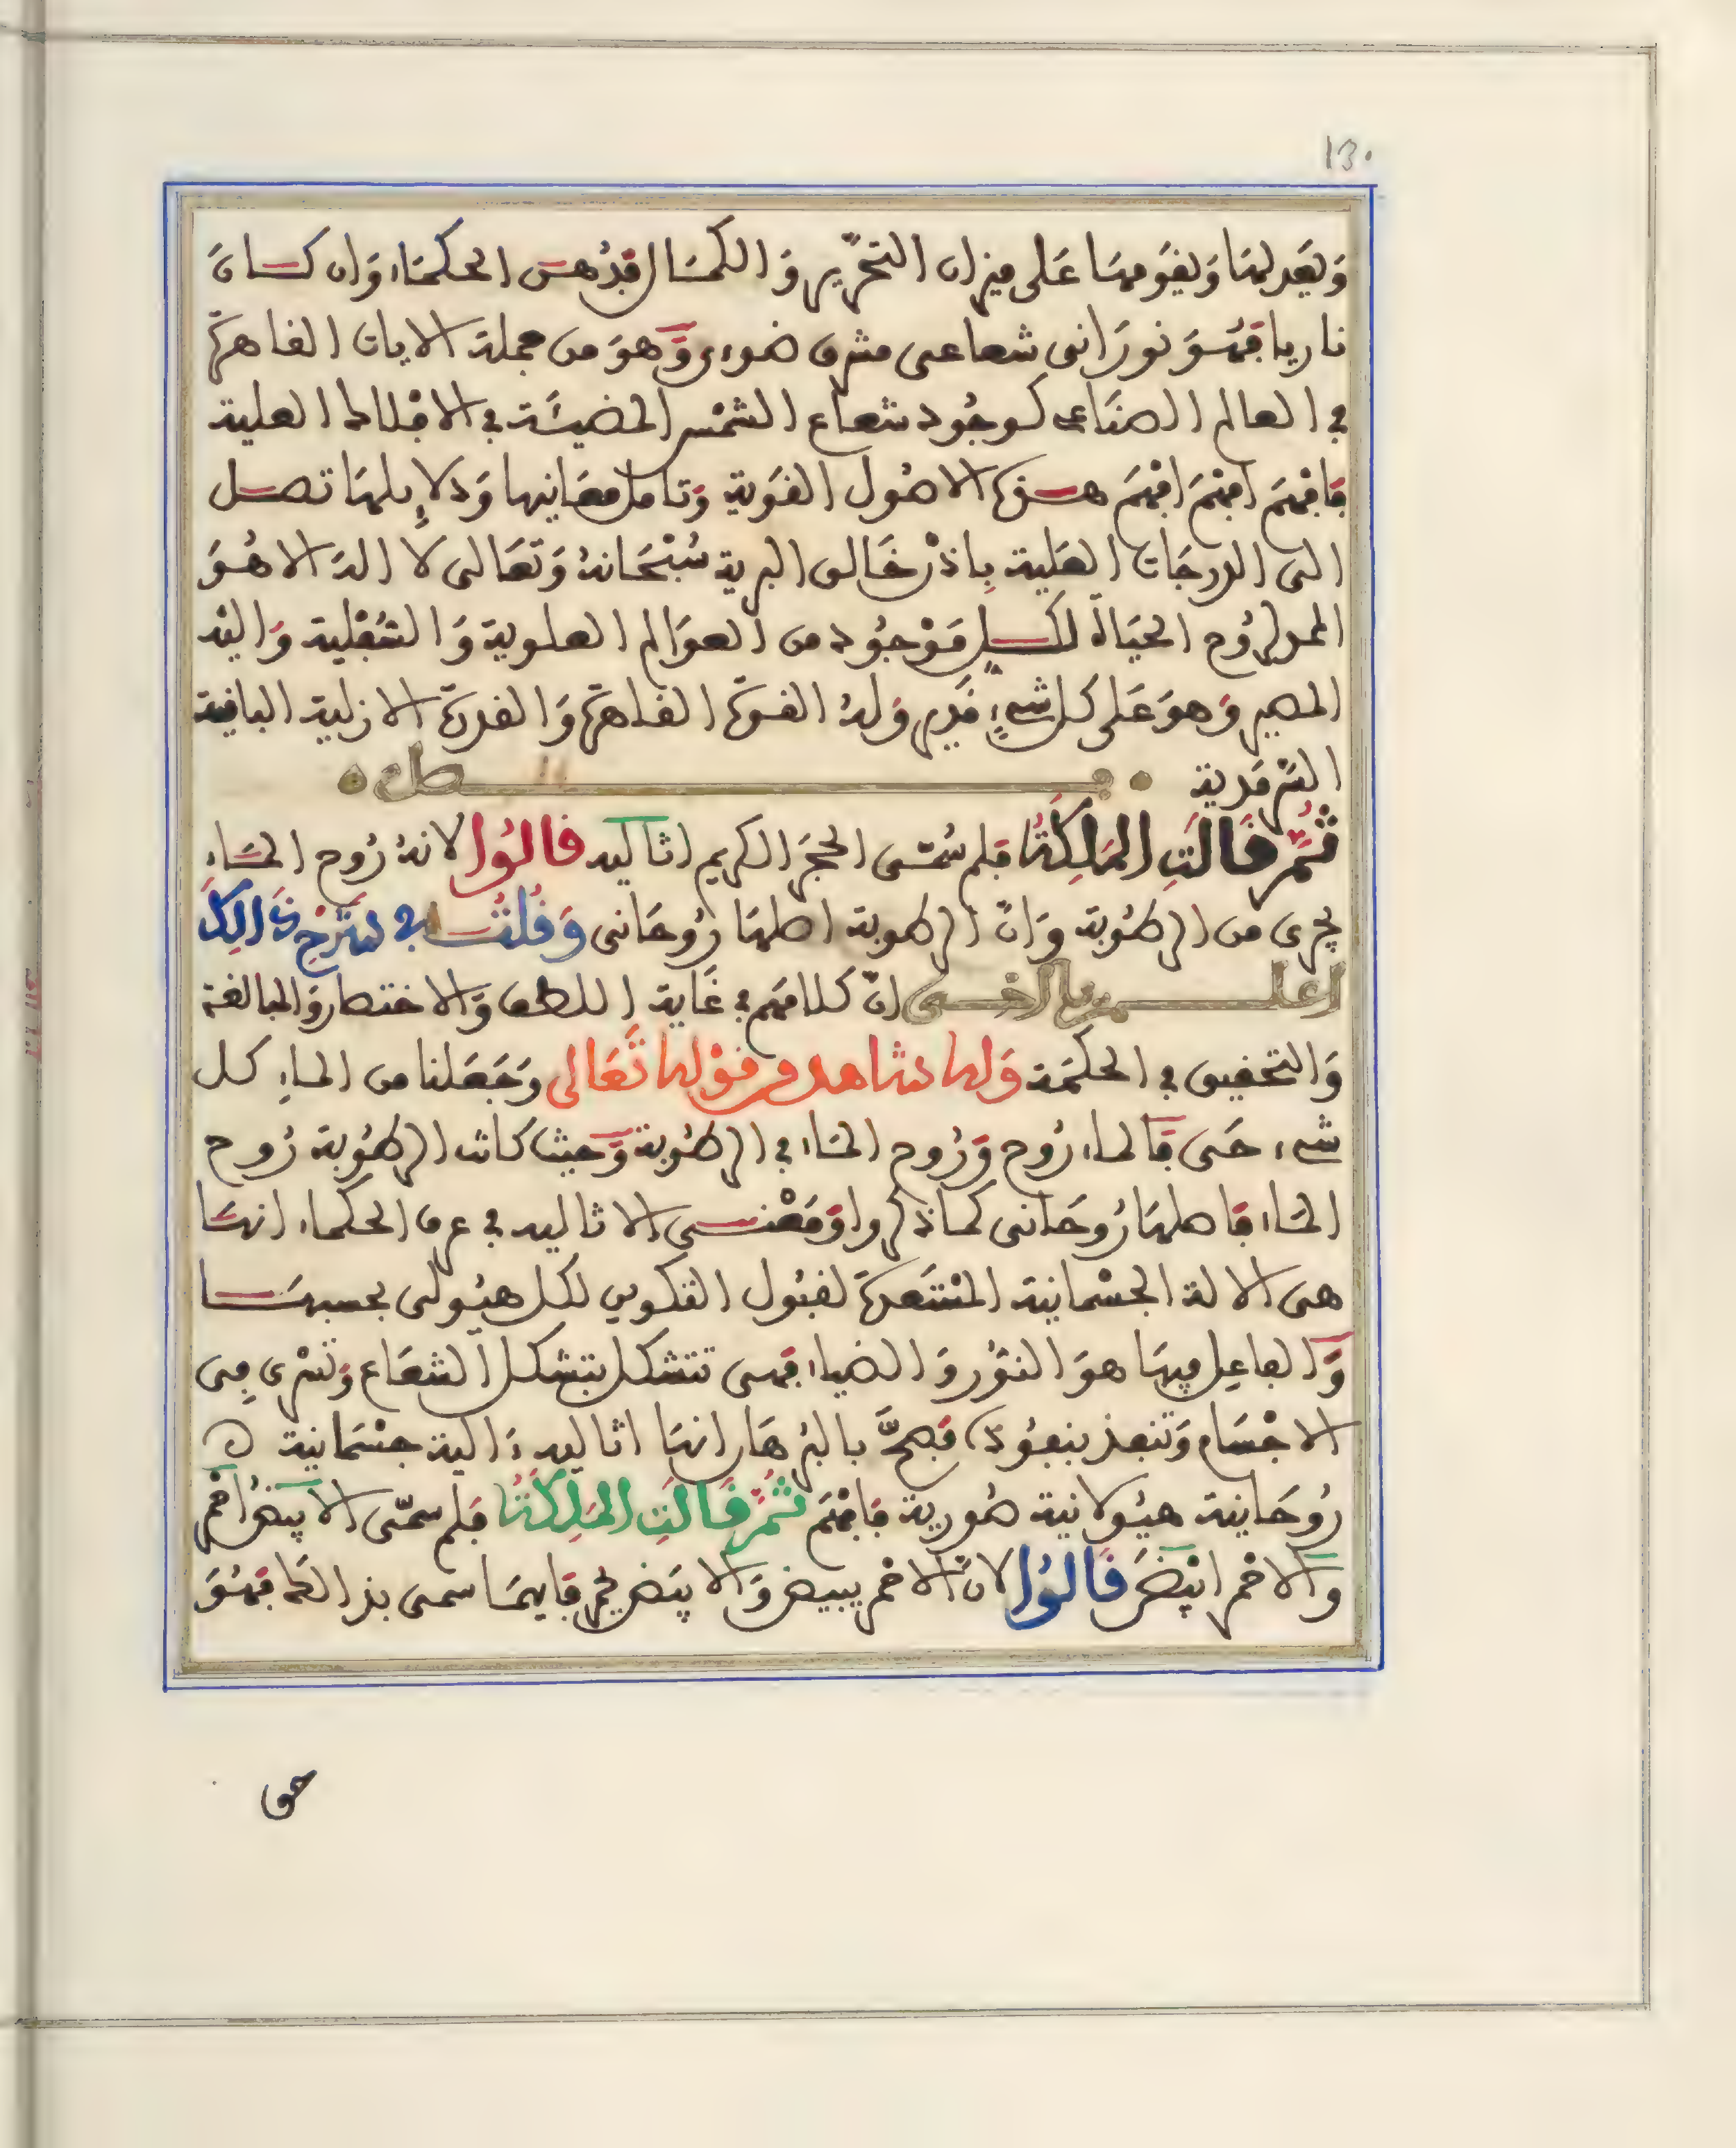 130
وَيعَدلهَا وَيقَومهَا عَلى ميزان التحرّير وَالكمَال فدُهس الحكمَاء وَان كسانَ
ناريا فهَسوَ نورَانى شعاعى مشرق ضوءى وَهوَ من جملة الايات القاهرة
في العالم الصنَاعى كوجُود شعاع الشمْس المضيئَة في الافلاك العلية
فافهَم افهَم افهَم هذه الاصُول القوَية وَتامل معَانيها وَدلايلهَا تصل
الى الدرجَات العَلية بِاذن خَالق البرية سُبْحَانهُ وَتعَالى لا اله الا هُوَ
الممد لرُوح الحيَاة لكل مَوْجُود من العوَالم العلوية وَالسُفْلية وَاليْه
المصير وَهوَ عَلى كل شىءٍ قَدير وَلهُ القوة القاهرة وَالقدرة الازلية الباقية
السَرْمَدية
ثُمَّ قَالَتِ المَلِكَةُ فلم سُمّى الحجَر الكريم اثاليه قالوُا لانهُ رُوح المَاء
يجرى من الرطُوبة وَانّ الرطوبة اصلهَا رُوحَانى وَقُلْتُ في شرْح ذَالِكَ
اعلم يا اخى انّ كلامَهم في غَاية اللطف وَالاختصار وَالمبالغة
وَالتحقيق في الحكمَة وَلها شاهد من قوْله تَعَالى وَجَعَلنا من الماءِ كل
شىء حَى فَالماء رُوح وَرُوح المَاء في الرطُوبة وَحيث كانت الرطُوبة رُوح
المَاء فاصلهَا رُوحَانى كما ذكروا وَمَعْنى الاثاليه في عرف الحكماء انهَا
هى الالة الجسْمانية المسْتَعدة لقبُول التكوين لكل هيُولى بحسبهَا
وَالفاعِل فيهَا هوَ النوُر وَالضياء فهى تتشكل بتشكل الشعَاع وَتسْرى فِى
الاجْسَام وَتنفذ بنفوُذه فصحَّ بالبرْهَان انهَا اثاليه ءَالية جسْمَانية
رُوحَانية هيُولانية صُورية فافهَم ثُمَّ قَالَتِ المَلِكَةُ فلم سمّى الابيَض احْمر
وَالاحْمر ابيْضَ قالوُا لانّ الاحْمر يبيض وَالابيَض يحمر فايهمَا سمى بذالك فهُوَ
حق